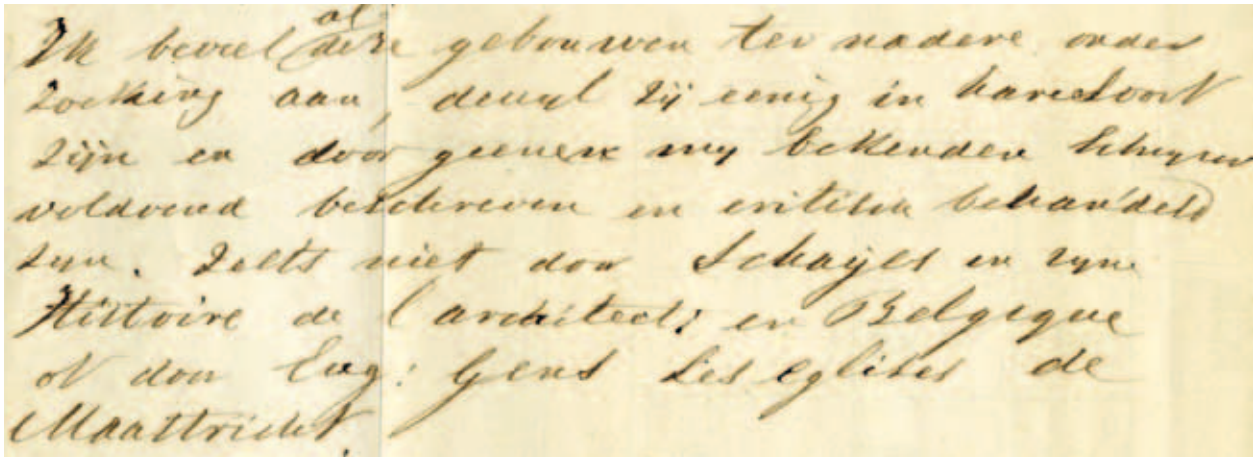 Ik beveel al deze gebouwen ter nadere onder
zoeking aan, dewyl zij eenig in hare soort
zijn en door geenen my bekenden Schryver
voldoend beschreven en critisch behandeld
zyn. Zelfs niet door Schayes in zyne
Histoire de l'architect: en Belgique
of door Eug: Gens Les eglises de
Maastricht.